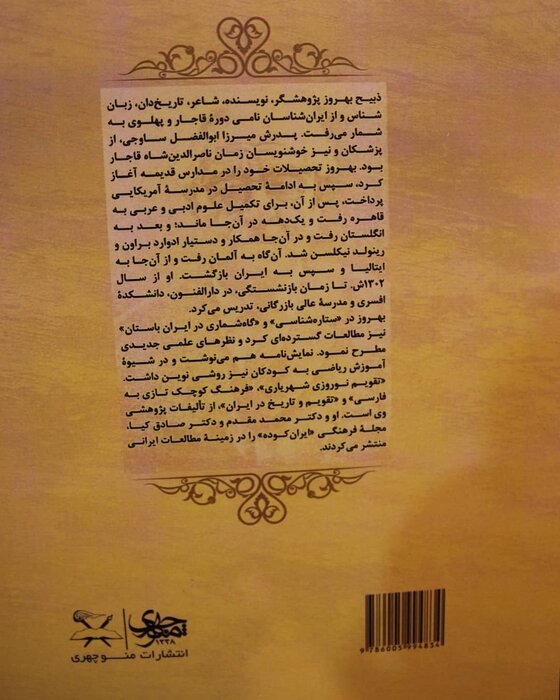 ذبیح بهروز پژوهشگر، نویسنده، شاعر، تاریخ‌دان، زبان
شناس و از ایران‌شناسان نامی دورهٔ قاجار و پهلوی به
شمار می‌رفت. پدرش میرزا ابوالفضل ساوجی، از
پزشکان و نیز خوشنویسان زمان ناصرالدین‌شاه قاجار
بود. بهروز تحصیلات خود را در مدارس قدیمه آغاز
کرد، سپس به ادامهٔ تحصیل در مدرسهٔ آمریکایی
پرداخت، پس از آن، برای تکمیل علوم ادبی و عربی به
قاهره رفت و یک‌دهه در آن‌جا ماند؛ و بعد به
انگلستان رفت و در آن‌جا همکار و دستیار ادوارد براون و
رینولد نیکلسن شد. آن‌گاه به آلمان رفت و از آن‌جا به
ایتالیا و سپس به ایران بازگشت. او از سال
۱۳۰۲ش. تا زمان بازنشستگی، در دارالفنون، دانشکدهٔ
افسری و مدرسهٔ عالی بازرگانی، تدریس می‌کرد.
بهروز در «ستاره‌شناسی» و «گاه‌شماری در ایران باستان»
نیز مطالعات گسترده‌ای کرد و نظرهای علمی جدیدی
مطرح نمود. نمایش‌نامه هم می‌نوشت و در شیوهٔ
آموزش ریاضی به کودکان نیز روشی نوین داشت.
«تقویم نوروزی شهریاری»، «فرهنگ کوچک تازی به
فارسی» و «تقویم و تاریخ در ایران»، از تألیفات پژوهشی
وی است. او و دکتر محمد مقدم و دکتر صادق کیا،
مجلهٔ فرهنگی «ایران‌کوده» را در زمینهٔ مطالعات ایرانی
منتشر می‌کردند.
منوچهری
۱۳۳۸
انتشارات منوچهری
9786005994834